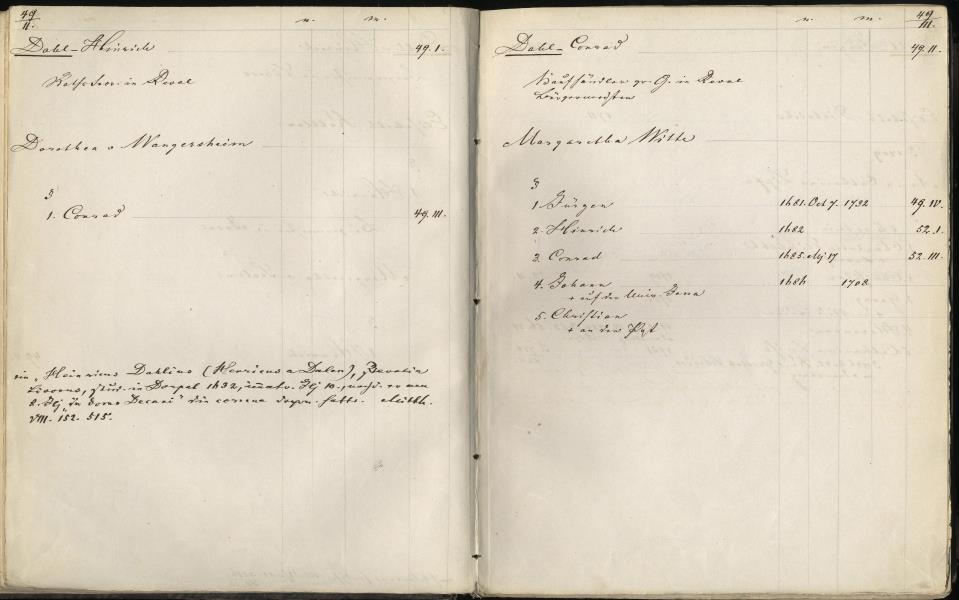 49
II.
n. m.
Dahl - Hinrich 49.I.
in Reval
Dorothea v Wangersheim
3
1. Conrad 49.III.
ein "Heinricus Dahlius (Henricus a Dalen), Revalia
Livonus, stud. in Dorpat 1632, immatr. Jlj 10.,
8. Jlj "in domo Decani" die
VIII. 152. 515.
n. m.
49
III.
Dahl - Conrad 49.II.
Kaufhändler gr. G. in Reval
Bürgermeister
Margaretha Witte
3
1 Jürgen 1681. Oct 7. 1732 49.IV.
2. Hinrich 1682 52.I.
3. Conrad 1685. Mj 17 52.III.
4. Johann 1686 1708
+ auf der Univ. Jena
5. Christian
+ an der Pest